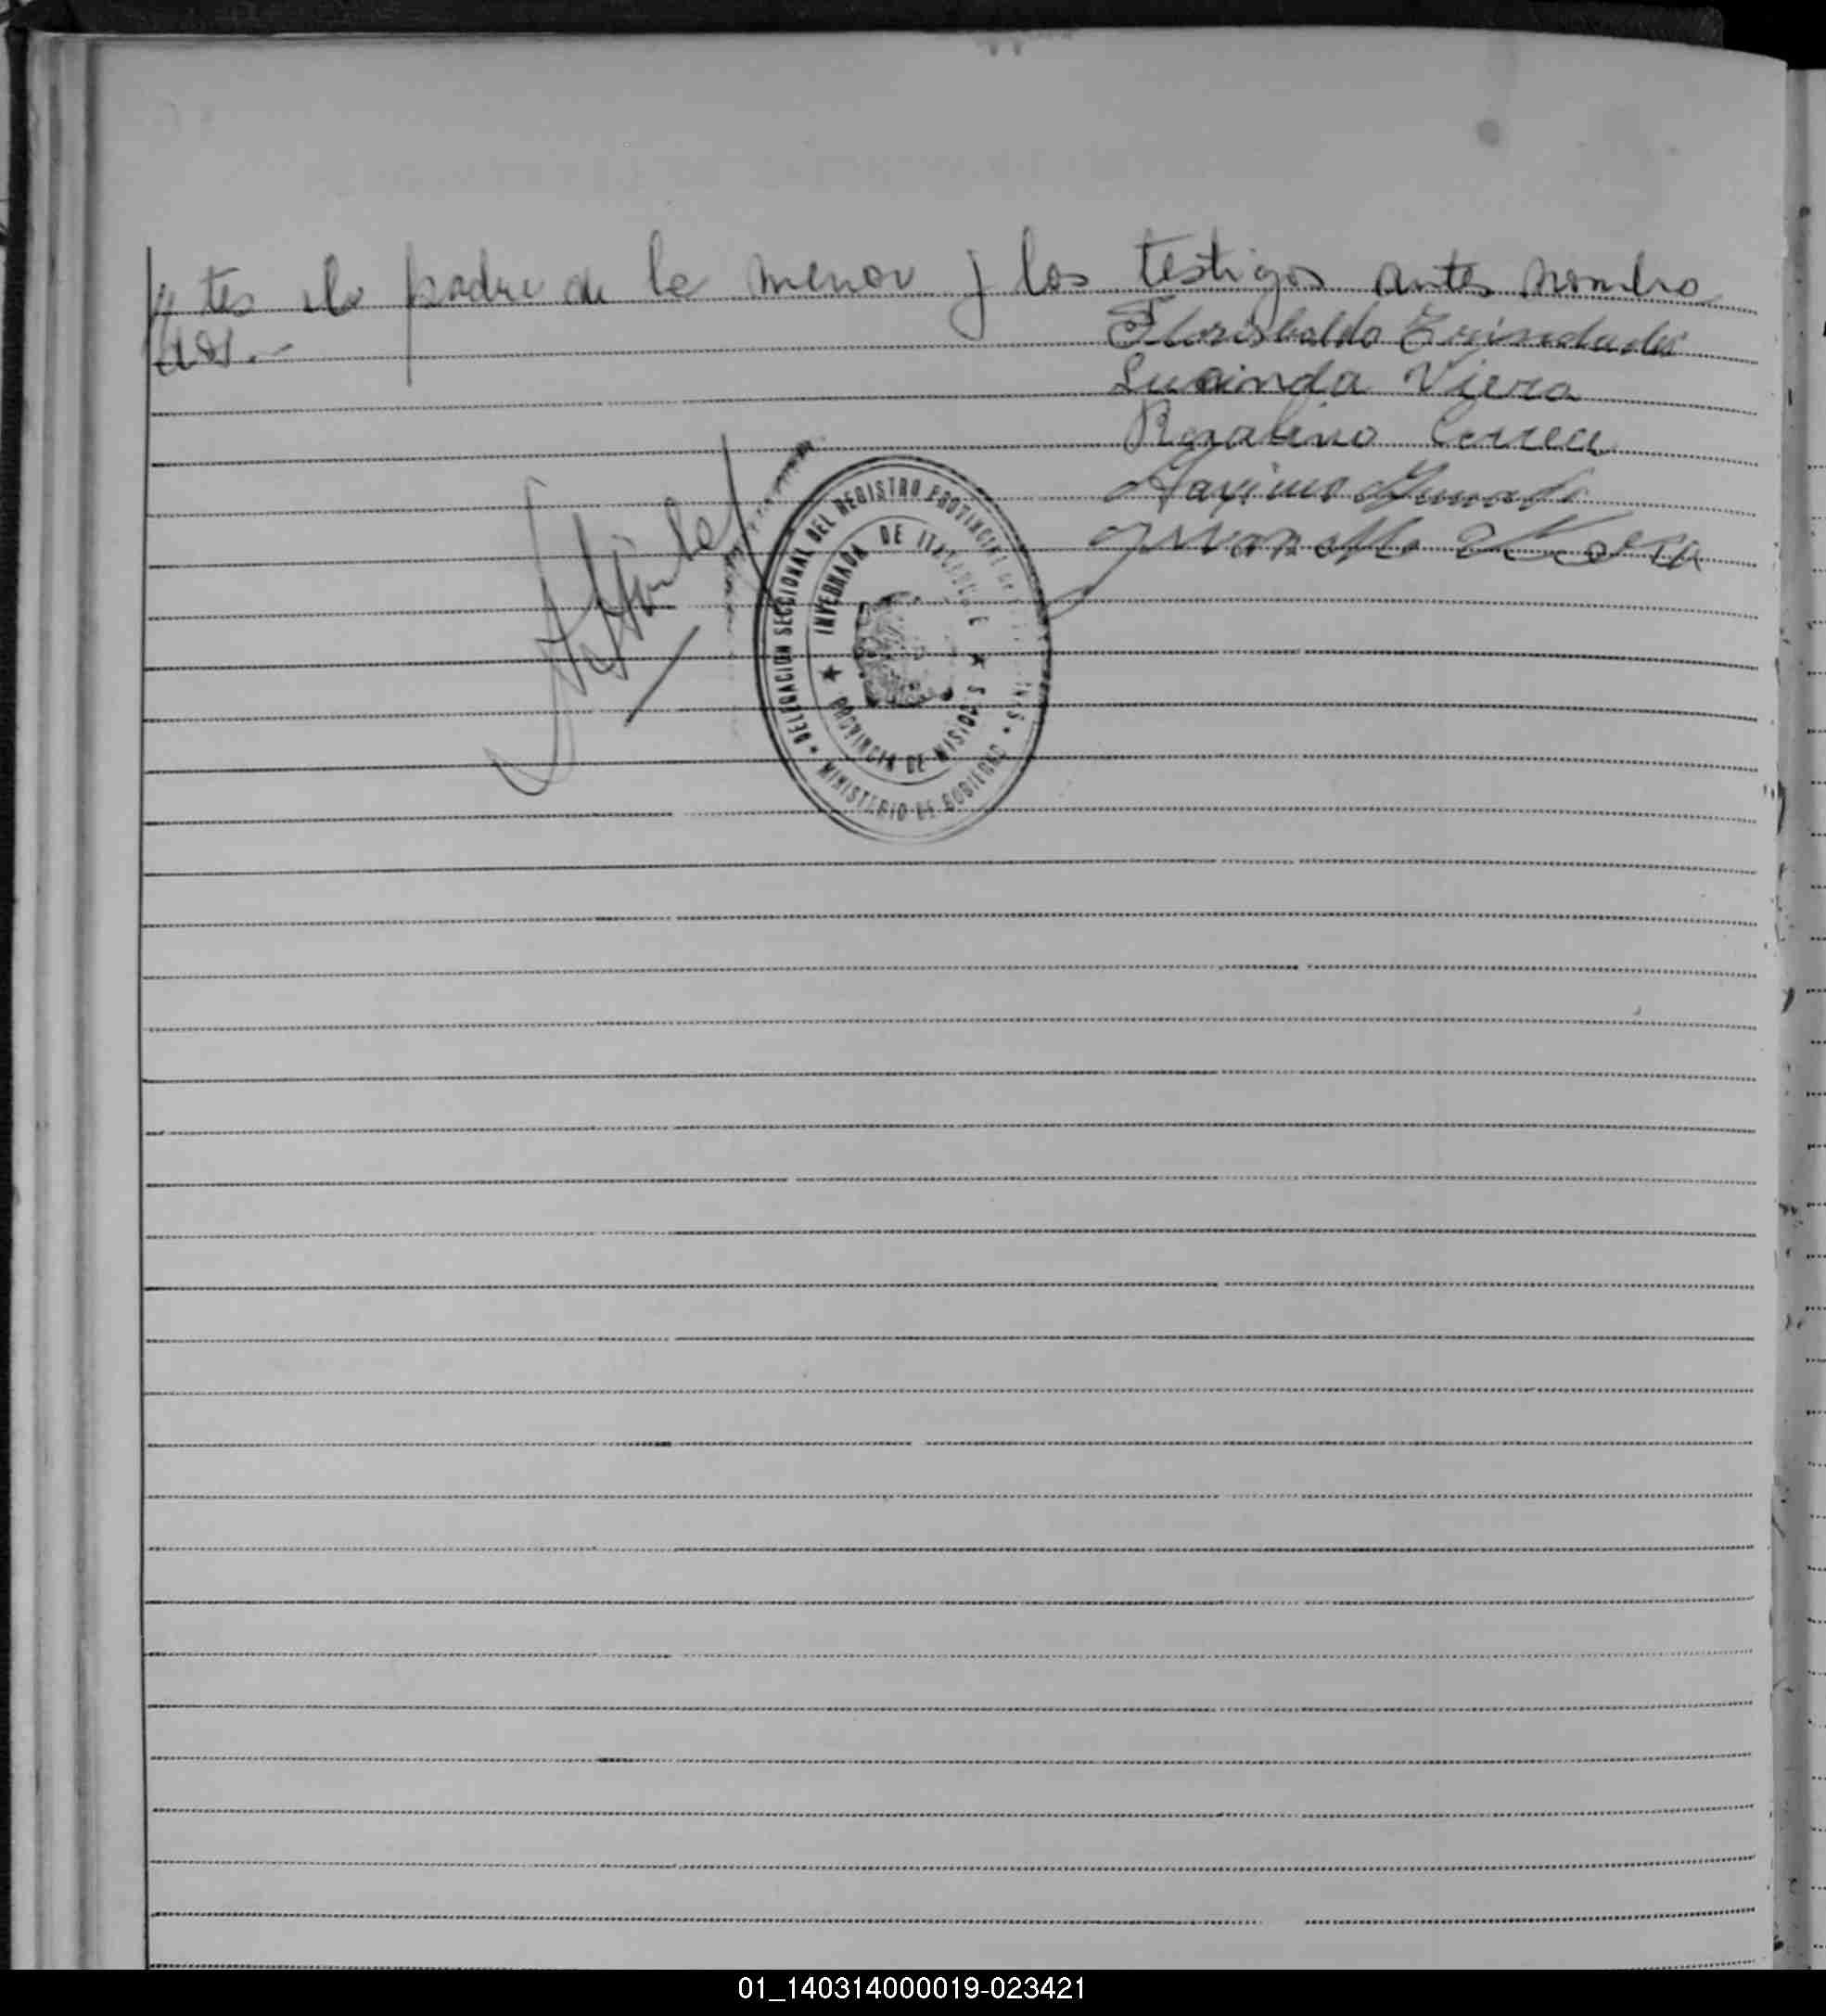 tes los padre de la menor y los testigos antes nombra
dos.-
Florisbaldo Trindades
Lucinda Viera
Rosalino Correa
Maximo
DELEGACION SECCIONAL DEL REGISTRO PROVINCIAL DE
INVERNADA DE ITACARUARE
PROVINCIA DE MISIONES
MINISTERIO DE GOBIERNO
01_140314000019-023421